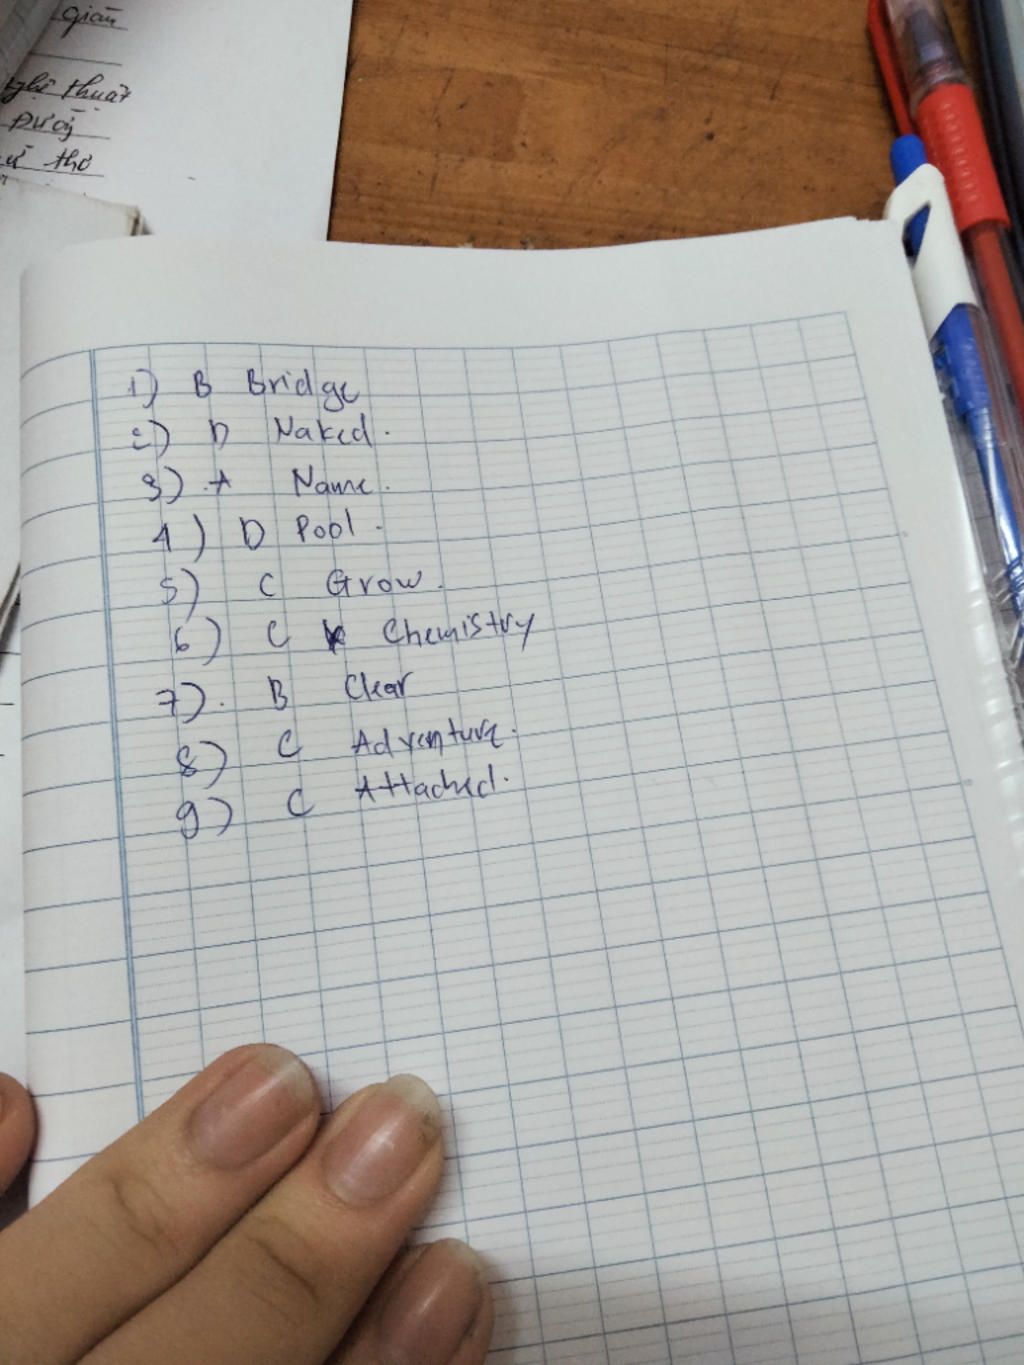 giãn
nghệ thuật
Đường
thơ
1) B Bridge
2) D Naked.
3) A Name.
4) D Pool.
5) C Grow.
6) C Chemistry
7). B Clear
8) C Adventure.
9) C Attached.